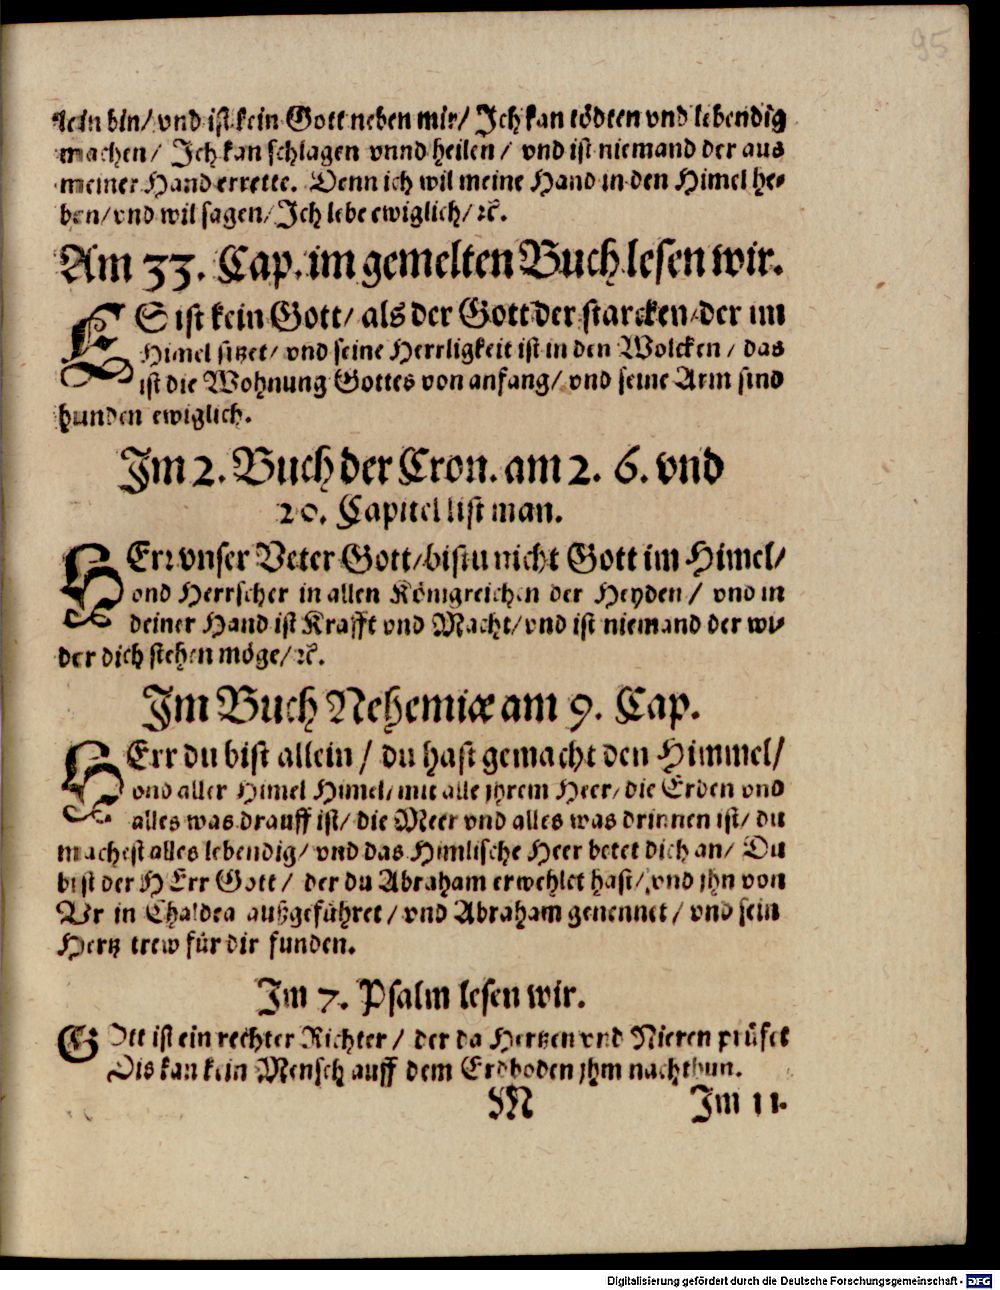 95
lein bin/ vnd ist kein Gott neben mir/ Ich kan tödten vnd lebendig
machen/ Ich kan schlagen vnnd heilen/ vnd ist niemand der aus
meiner Hand errette. Denn ich wil meine Hand in den Himel he-
ben/ vnd wil sagen/ Ich lebe ewiglich/ ꝛc.
Am 33. Cap. im gemelten Buch lesen wir.
ES ist kein Gott/ als der Gott der starcken/ der im
Himel sitzet/ vnd seine Herrligkeit ist in den Wolcken/ das
ist die Wohnung Gottes von anfang/ vnd seine Arm sind
hunden ewiglich.
Im 2. Buch der Cron. am 2. 6. vnd
20. Capitel list man.
HErr vnser Veter Gott/ bistu nicht Gott im Himel/
vnd Herrscher in allen Königreichen der Heyden/ vnd in
deiner Hand ist Krafft vnd Macht/ vnd ist niemand der wi-
der dich stehen möge/ ꝛc.
Im Buch Nehemiæ am 9. Cap.
HErr du bist allein/ du hast gemacht den Himmel/
vnd aller Himel Himel/ mit alle jhrem Heer/ die Erden vnd
alles was drauff ist/ die Meer vnd alles was drinnen ist/ du
machest alles lebendig/ vnd das Himlische Heer betet dich an/ Du
bist der HErr Gott/ der du Abraham erwehlet hast/ vnd jhn von
Vr in Chaldea außgeführet/ vnd Abraham genennet/ vnd sein
Hertz trew für dir funden.
Im 7. Psalm lesen wir.
GOtt ist ein rechter Richter/ der da Hertzen vnd Nieren prüfet
Dis kan kein Mensch auff dem Erdboden jhm nachthun.
M Im 11.
Digitalisierung gefördert durch die Deutsche Forschungsgemeinschaft - DFG